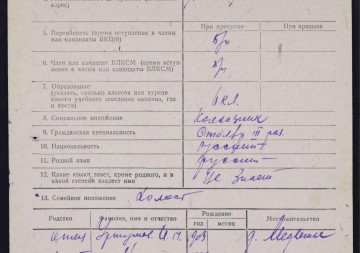 адрес)
При приписке
При
5. Партийность (время вступления в члены
или кандидаты ВКП(б)
б/п
6. Член или кандидат ВЛКСМ (время вступ-
ления в члены или кандидаты ВЛКСМ)
7. Образование:
(указать, сколько классов или курсов
какого учебного заведения окончил, где
и когда)
6 кл.
8. Социальное положение
Колхозник
9. Гражданская специальность
Столяр III раз.
10. Национальность
Русский
11. Родной язык
русский
12. Какие языки знает, кроме родного, и в
какой степени владеет ими
Не знает
13. Семейное положение
Холост
Родство
Фамилия, имя и отчество
Рождение
год
месяц
Местожительство
отец
903